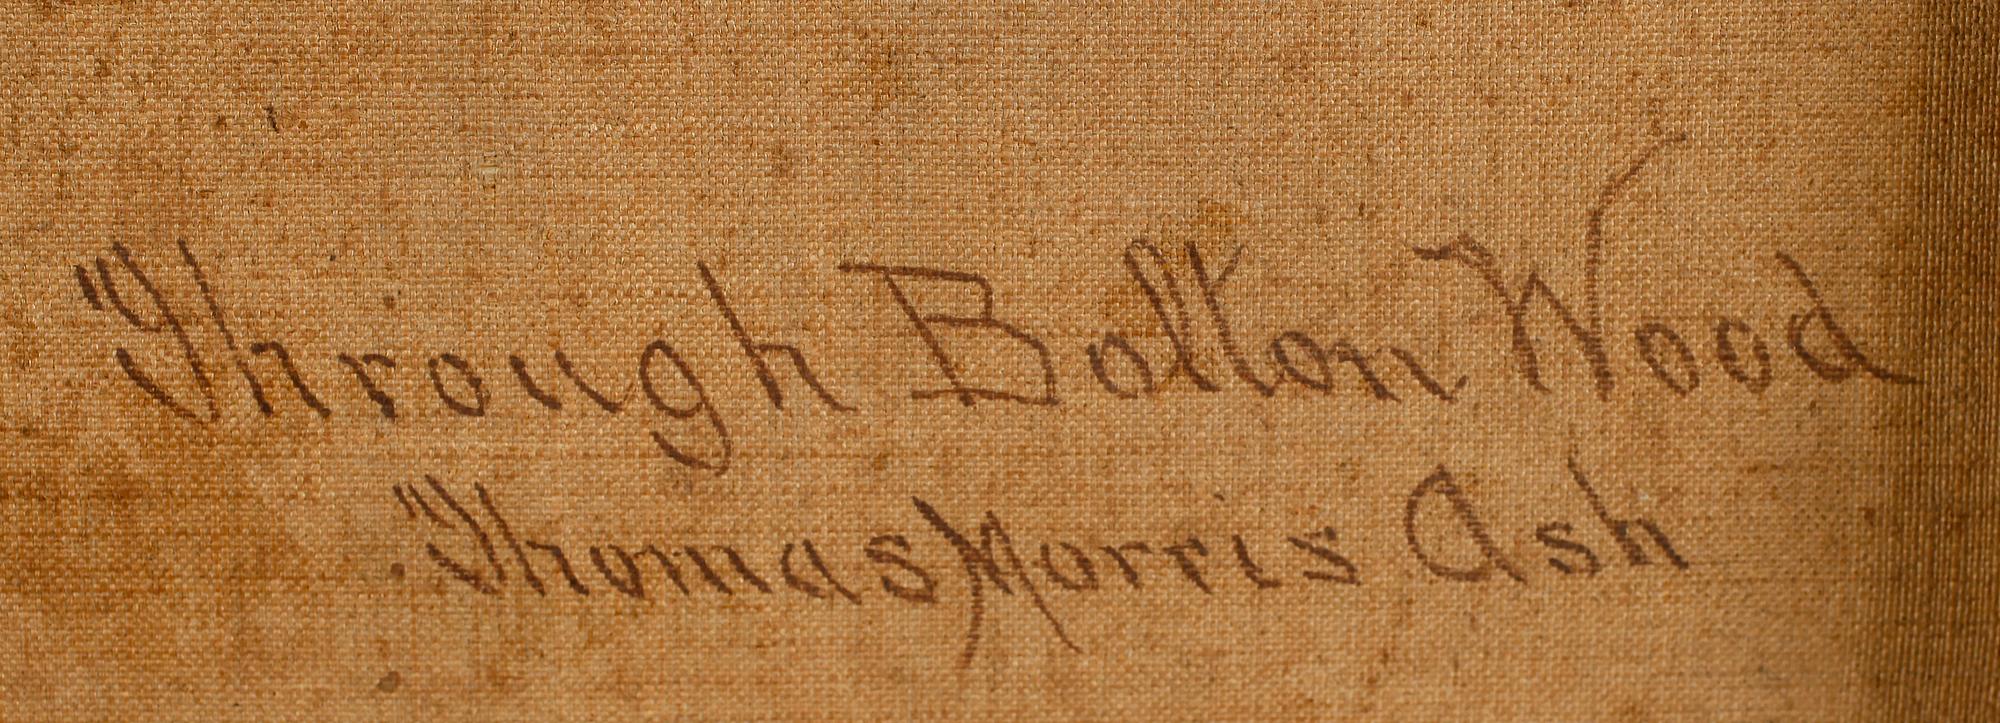 Through Bolton Wood
Thomas Morris Ash